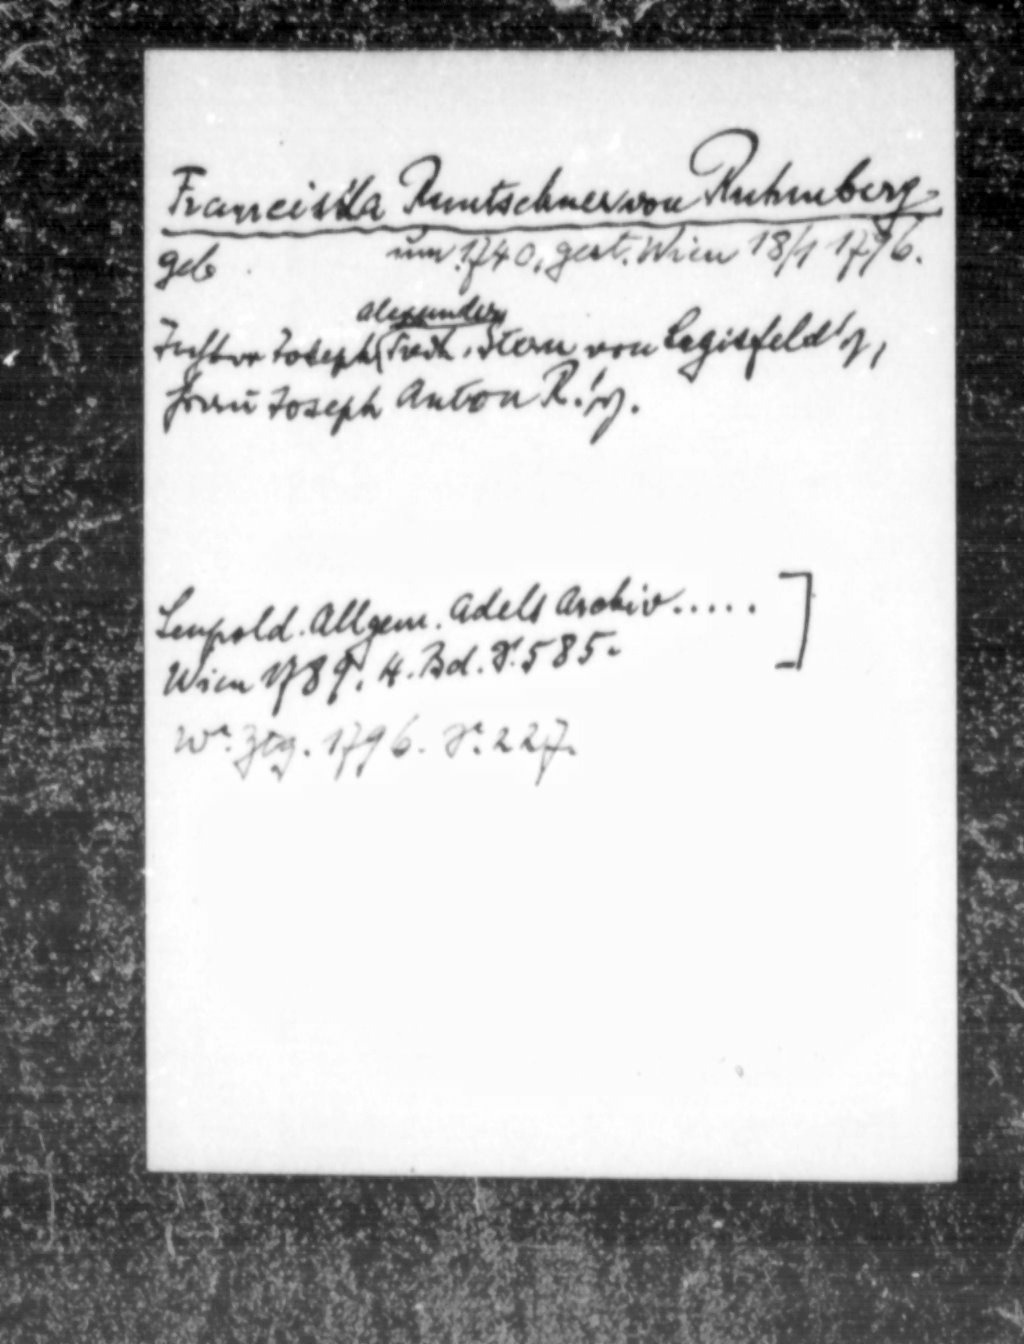 Franciska Runtschner von Ruhmberg
geb. um 1740, gest. Wien 18/1 1796.
Alexander
Tochter Joseph (Frdh. Stern von Legisfeld's,
Frau Joseph Anton R.'s.
Leupold. Allgem. Adels Archiv.....
Wien 1789. 4. Bd. S. 585.
Wr. Ztg. 1796. S. 227.